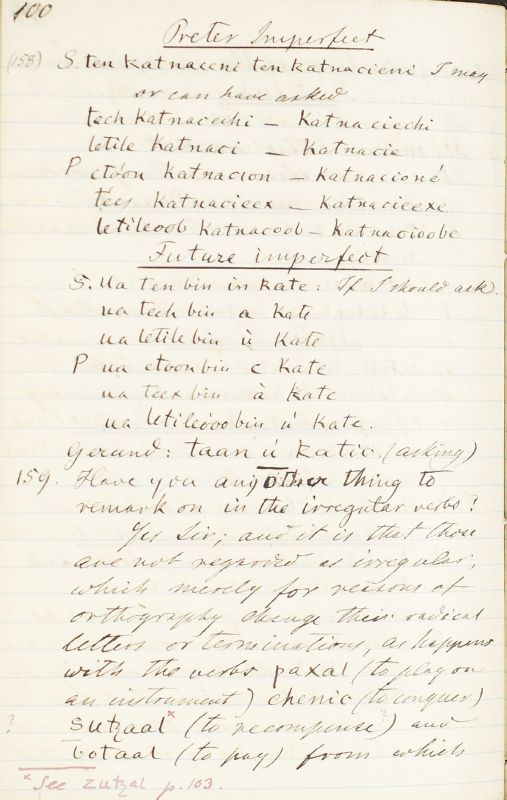 100
Preter Imperfect
(158) S. ten katnaceni ten katnacieni I may
or can have asked
tech katnacechi – Katnaciechi
letile Katnaci – Katnacie
P ctóon katnacion – Katnacioné
téex katnacieex – Katnacieexe
letileoob katnacoob – katnacioobe
Future imperfect
S. Ua ten bin in kate: If I should ask.
ua tech bin a kate
ua letile bin ù kate
P ua ctoon bin c kate
ua teex bin à kate
ua letileóoo bin ú kate.
Gerund: taan ú katic. (asking)
159. Have you any other thing to
remark on in the irregular verbs?
Yes Sir; and it is that those
are not regarded as irregular,
which merely for reasons of
orthography change their radical
letters or terminations, as happens
with the verbs paxal (to play on
an instrument) chenic (to conquer)
? sutzaal x (to recompense?) and
botaal (to pay) from which
x See zutzal p. 103.